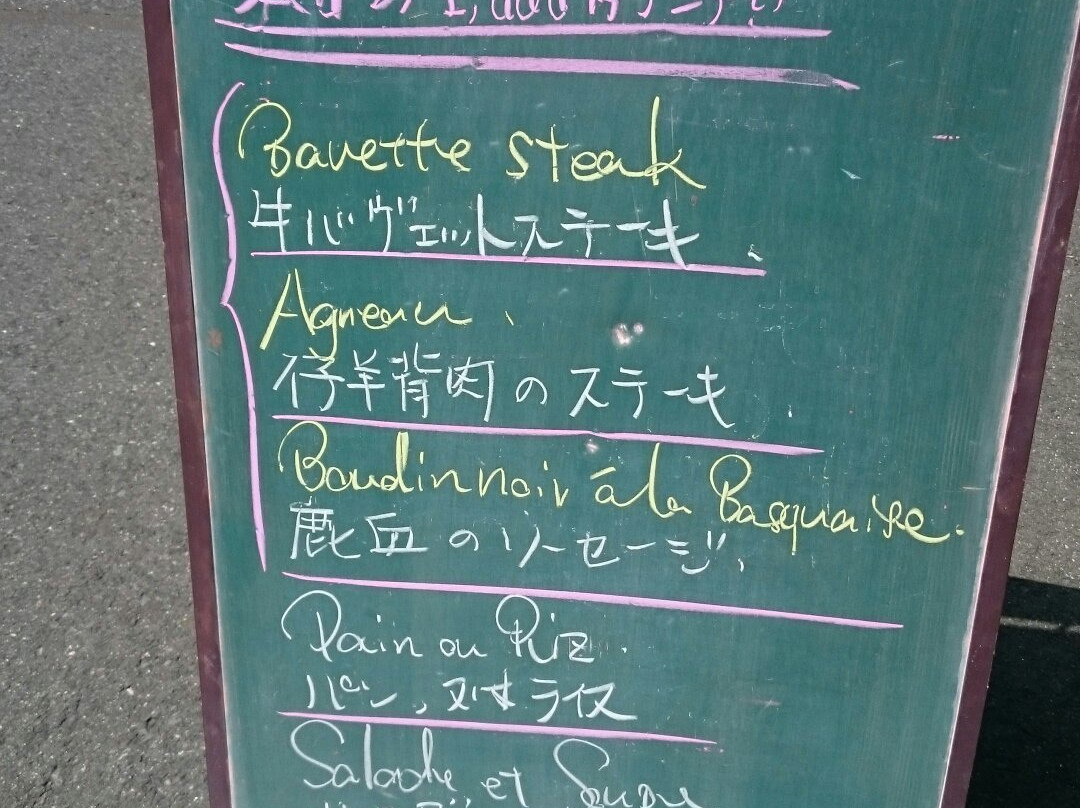 1,000円ランチ
Bavette steak
牛バヴェットステーキ
Agneau
仔羊背肉のステーキ
Boudin noir á la Basquaise.
鹿血のソーセージ
Pain ou Riz
パン、又はライス
Salade et Soupe